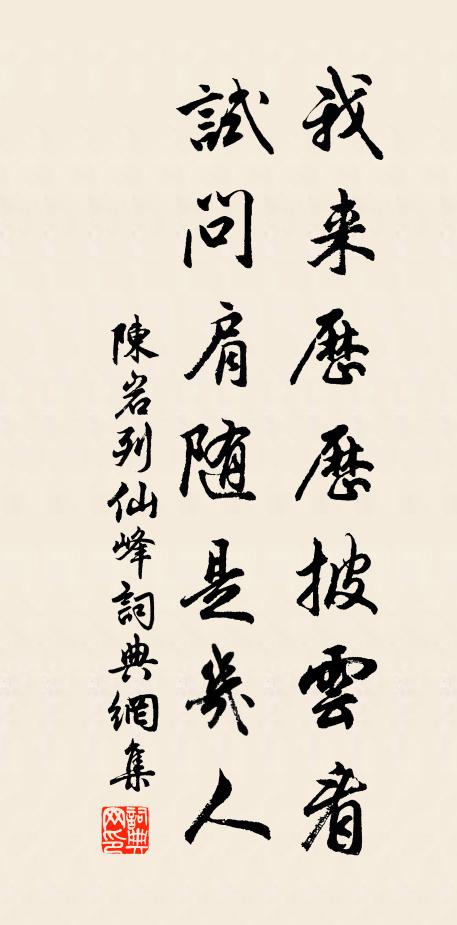 我来歷歷披雲看
試問肩随是幾人
陳岩列仙峰詞典網集
詞典网印